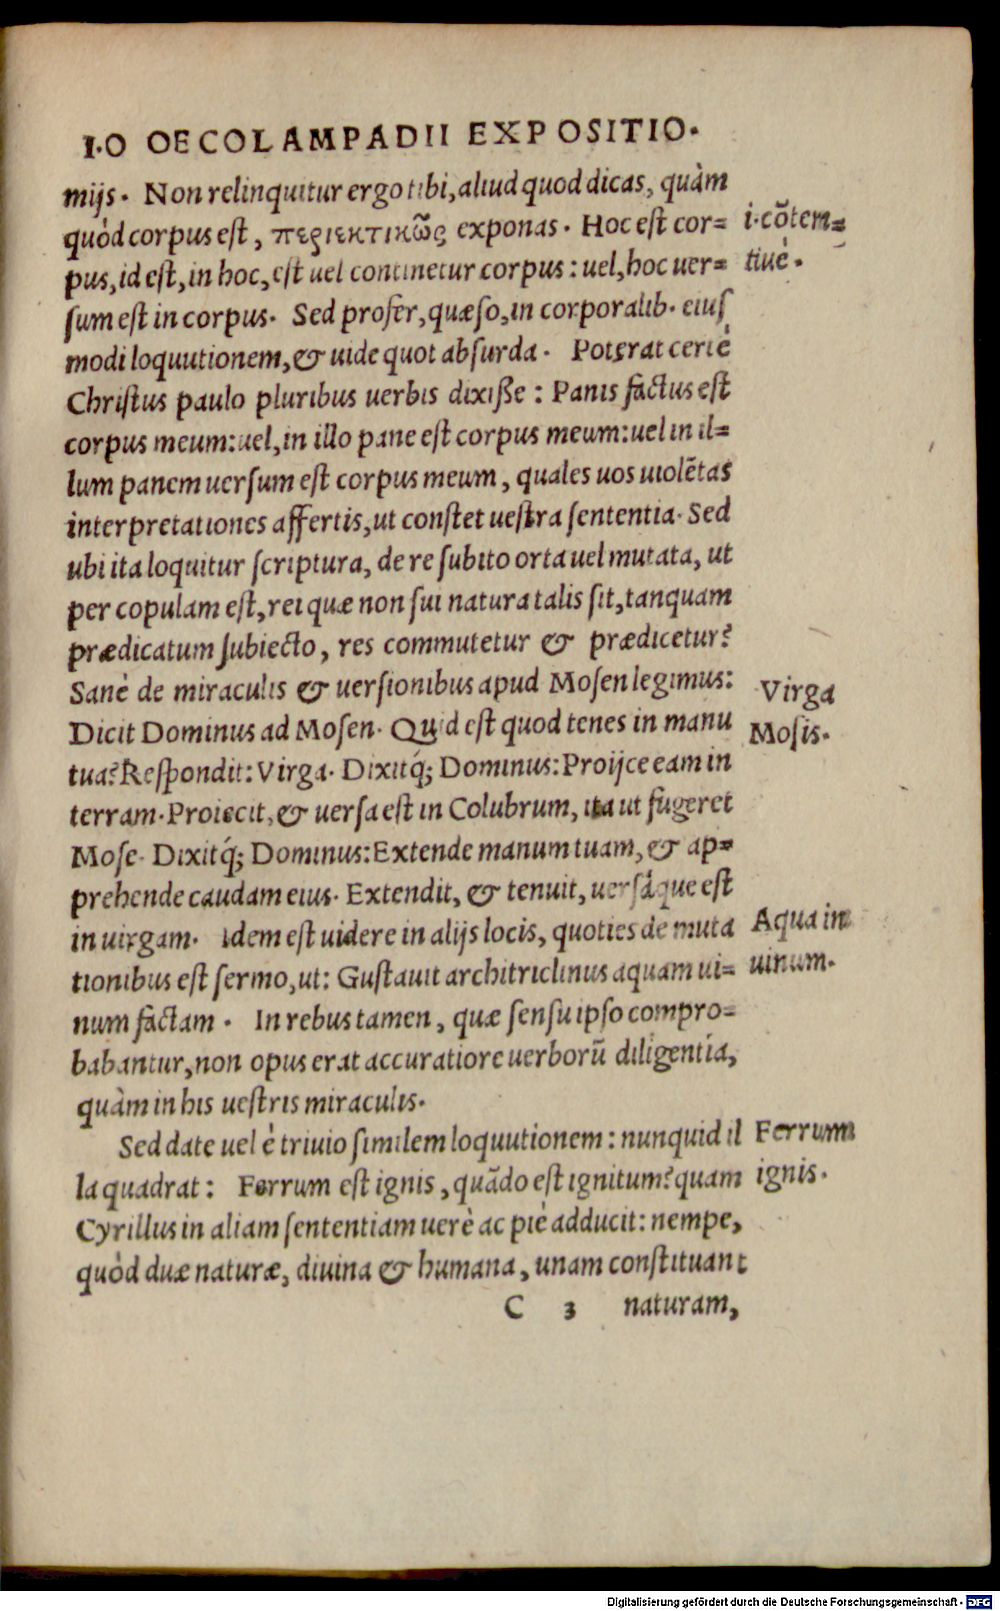 I.O OECOLAMPADII EXPOSITIO.
mijs. Non relinquitur ergo tibi, aliud quod dicas, quàm
quòd corpus est, περιεκτικῶς exponas. Hoc est cor=
i. cōtem=
pus, id est, in hoc, est uel continetur corpus: uel, hoc uer=
tiuè.
sum est in corpus. Sed profer, quæso, in corporalib. eius
modi loquutionem, & uide quot absurda. Poterat certè
Christus paulo pluribus uerbis dixisse: Panis factus est
corpus meum: uel, in illo pane est corpus meum: uel in il=
lum panem uersum est corpus meum, quales uos uiolētas
interpretationes affertis, ut constet uestra sententia. Sed
ubi ita loquitur scriptura, de re subito orta uel mutata, ut
per copulam est, rei quæ non sui natura talis sit, tanquam
prædicatum subiecto, res commutetur & prædicetur?
Sanè de miraculis & uersionibus apud Mosen legimus:
Virga
Dicit Dominus ad Mosen. Quid est quod tenes in manu
Mosis.
tua? Respondit: Virga. Dixitq́; Dominus: Proijce eam in
terram. Proiecit, & uersa est in Colubrum, ita ut fugeret
Mose. Dixitq́; Dominus: Extende manum tuam, & ap=
prehende caudam eius. Extendit, & tenuit, uersáque est
in uirgam. Idem est uidere in alijs locis, quoties de muta
Aqua in
tionibus est sermo, ut: Gustauit architriclinus aquam ui=
uinum.
num factam. In rebus tamen, quæ sensu ipso compro=
babantur, non opus erat accuratiore uerborū diligentia,
quàm in his uestris miraculis.
Sed date uel è triuio similem loquutionem: nunquid il
Ferrum
la quadrat: Ferrum est ignis, quādo est ignitum? quam
ignis.
Cyrillus in aliam sententiam uerè ac piè adducit: nempe,
quòd duæ naturæ, diuina & humana, unam constituant
C 3 naturam,
Digitalisierung gefördert durch die Deutsche Forschungsgemeinschaft - DFG